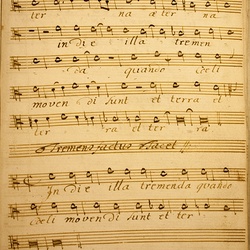 ter na æter na
in die illa tremen
da quando cæli
moven di sunt et terra et
ter ra et ter ra
Tremens factus Tacet
In die illa tremenda quando
cæli moven di sunt et ter